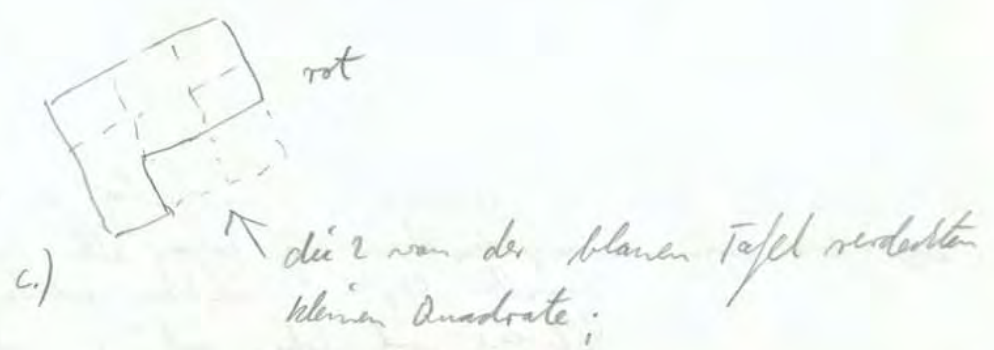 rot
die 2 von der blauen Tafel verdeckten
c.)
kleinen Quadrate;